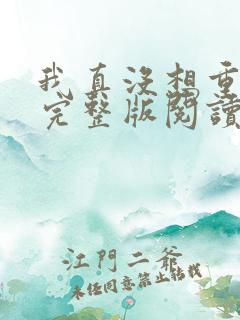 我真沒想重
完整版閱讀
江門二爺
未经同意禁止转载